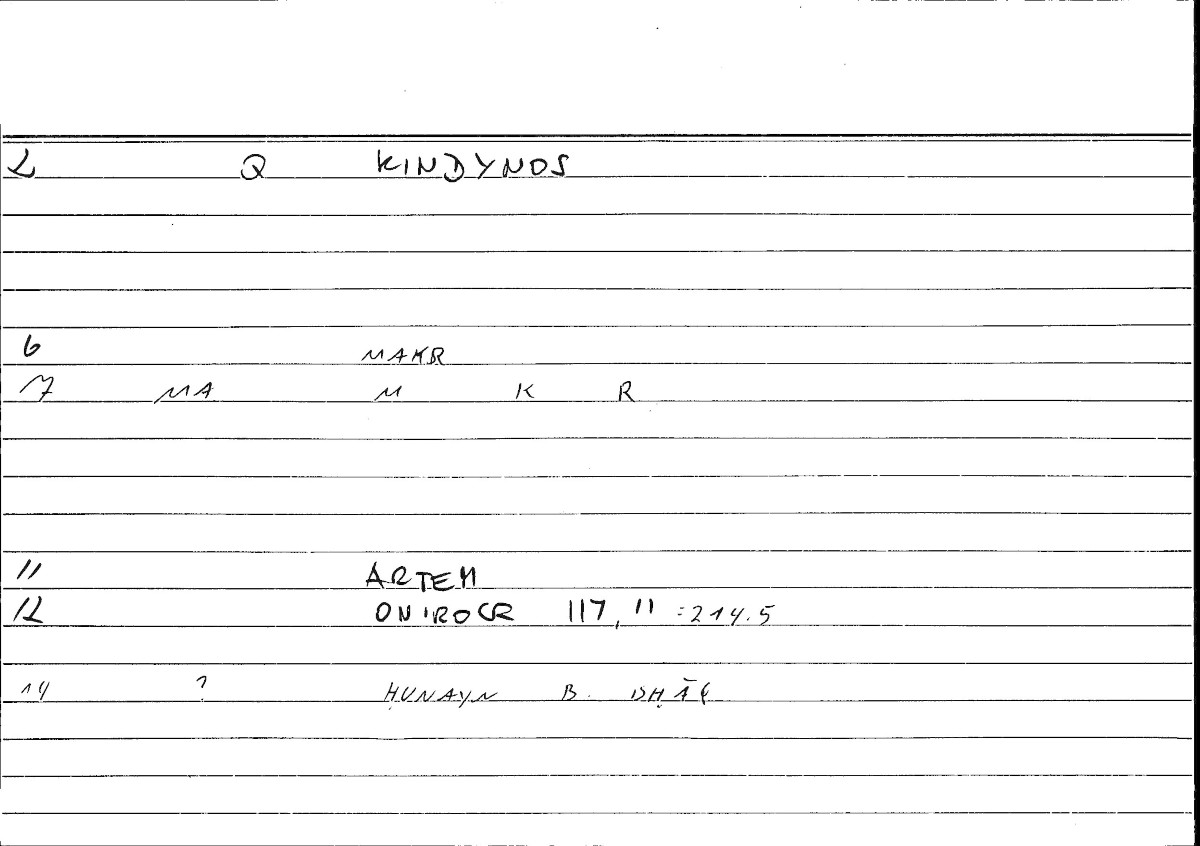 2 Q KINDYNOS
6 MAKR
7 MA M K R
11 ARTEM
12 ONIROCR 117, 11 = 214.5
14 ? ḤUNAYN B.